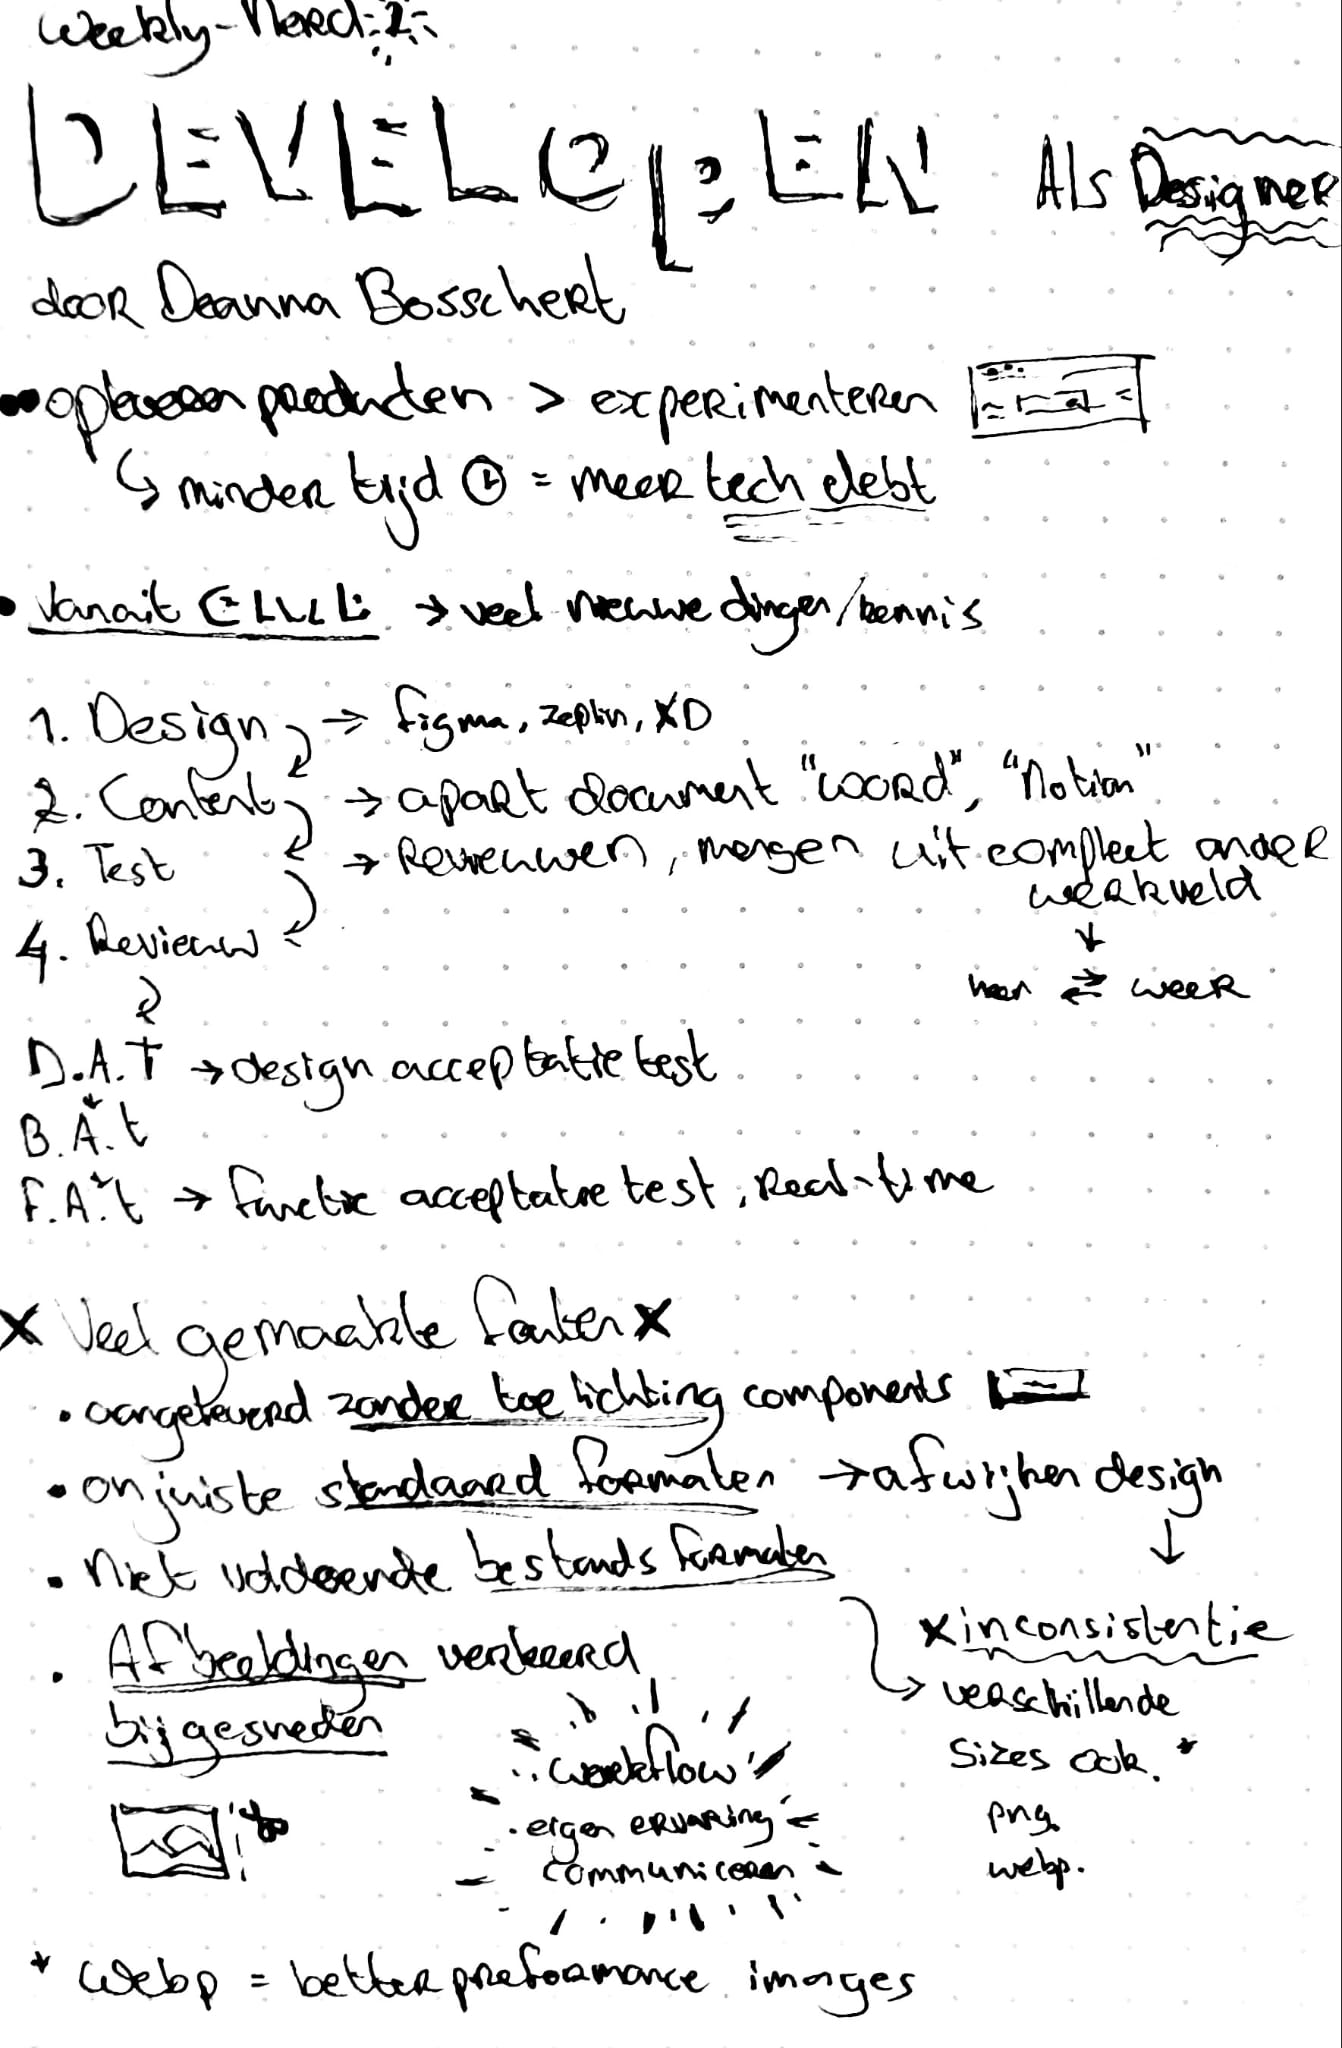 Weekly-Nerd
DEVELOpEN Als Designer
door Deanna Bosschert
opleveren producten > experimenteren
↳ minder tijd = meer tech debt
• Vanuit → veel nieuwe dingen/kennis
1. Design → figma, zeplin, XD
2. Content → apart document "woord", "Notion"
3. Test → Revieuwen, mergen uit compleet ander
werkveld
4. Revieuw
heen ⇄ weer
D.A.T → design acceptatie test
B.A.t
F.A.t → functie acceptatie test, Real-time
X Veel gemaakte fouten X
• aangeleverd zonder toelichting components
• onjuiste standaard formaten → afwijken design
• Niet voldoende bestands formaten
• Afbeeldingen verkeerd
bijgesneden
x inconsistentie
verschillende
sizes ook. *
png
webp.
workflow
eigen ervaring
communiceren
* webp = better preformance images